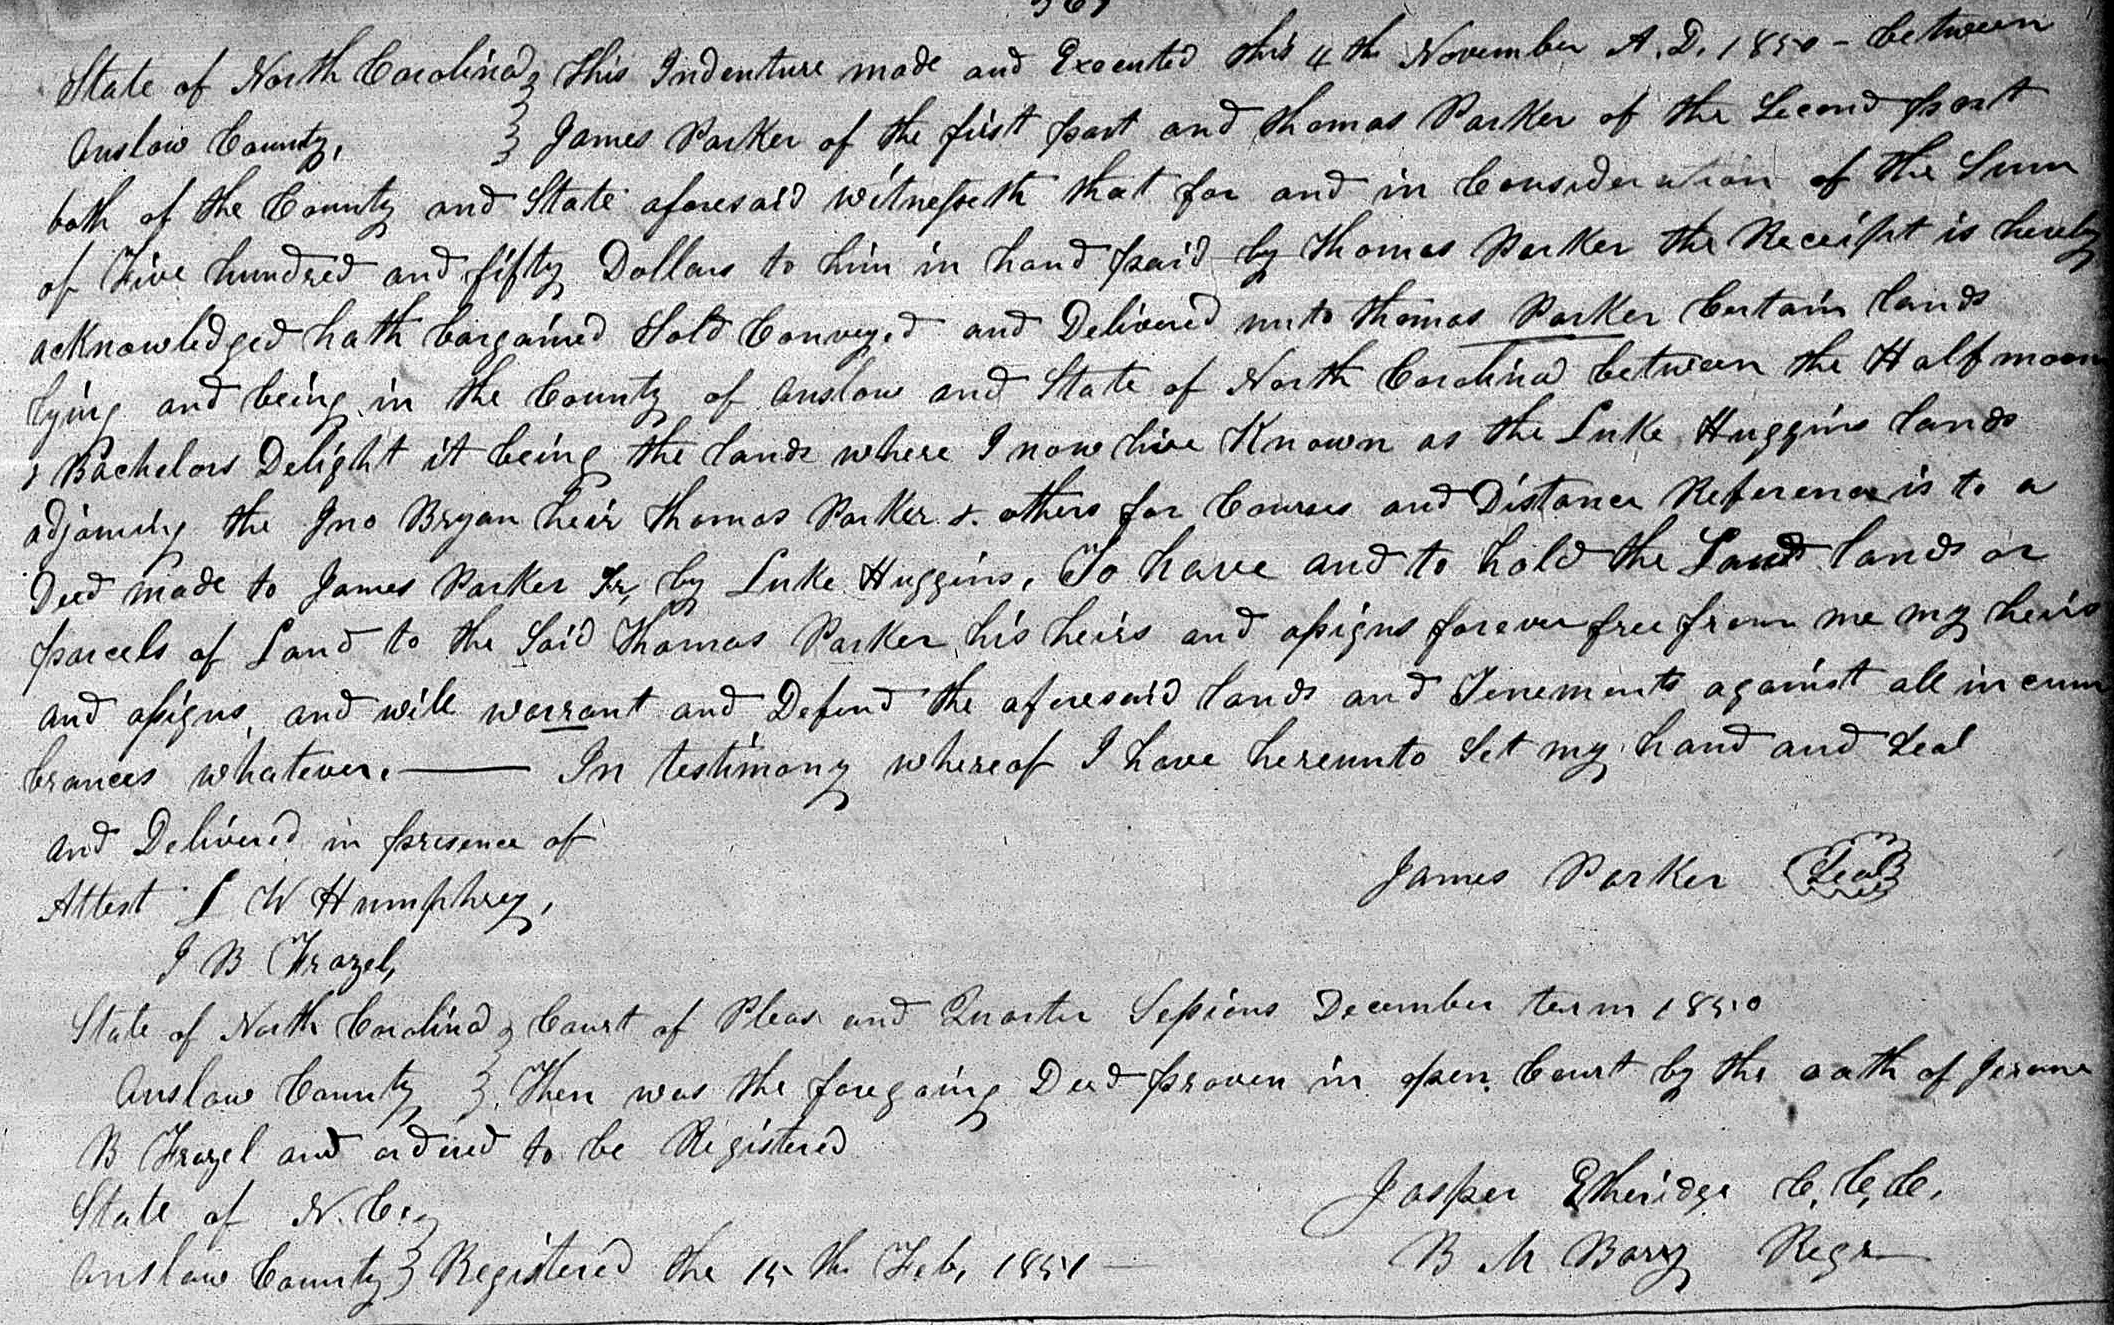 State of North Carolina } This Indenture made and Executed this 4th November A.D. 1850 - between
Onslow County, } James Parker of the first part and Thomas Parker of the Second part
both of the County and State aforesaid witnesseth that for and in Consideration of the Sum
of Five hundred and fifty Dollars to him in hand paid by Thomas Parker the Receipt is hereby
acknowledged hath bargained Sold Conveyed and Delivered unto Thomas Parker Certain lands
lying and being in the County of Onslow and State of North Carolina between the Half moon
& Bachelors Delight it being the lands where I now live Known as the Luke Huggins lands
adjoining the Jno Bryan heir Thomas Parker & others for Courses and Distance Reference is to a
Deed made to James Parker Jr, by Luke Huggins, To have and to hold the Land lands or
parcels of Land to the Said Thomas Parker his heirs and assigns forever free from me my heirs
and assigns, and will warrant and Defend the aforesaid lands and Tenements against all incum
brances whatever. — In testimony whereof I have hereunto Set my hand and Seal
and Delivered in presence of
James Parker Seal
Attest L W Humphrey,
J B Frazel,
State of North Carolina } Court of Pleas and Quarter Sessions December term 1850
Onslow County } Then was the foregoing Deed proven in open Court by the oath of Jerome
B Frazel and ordered to be Registered
Jasper Etheridge C. C. C.
State of N. C. }
Onslow County } Registered the 15th Feb, 1851 — B M Barry Regr